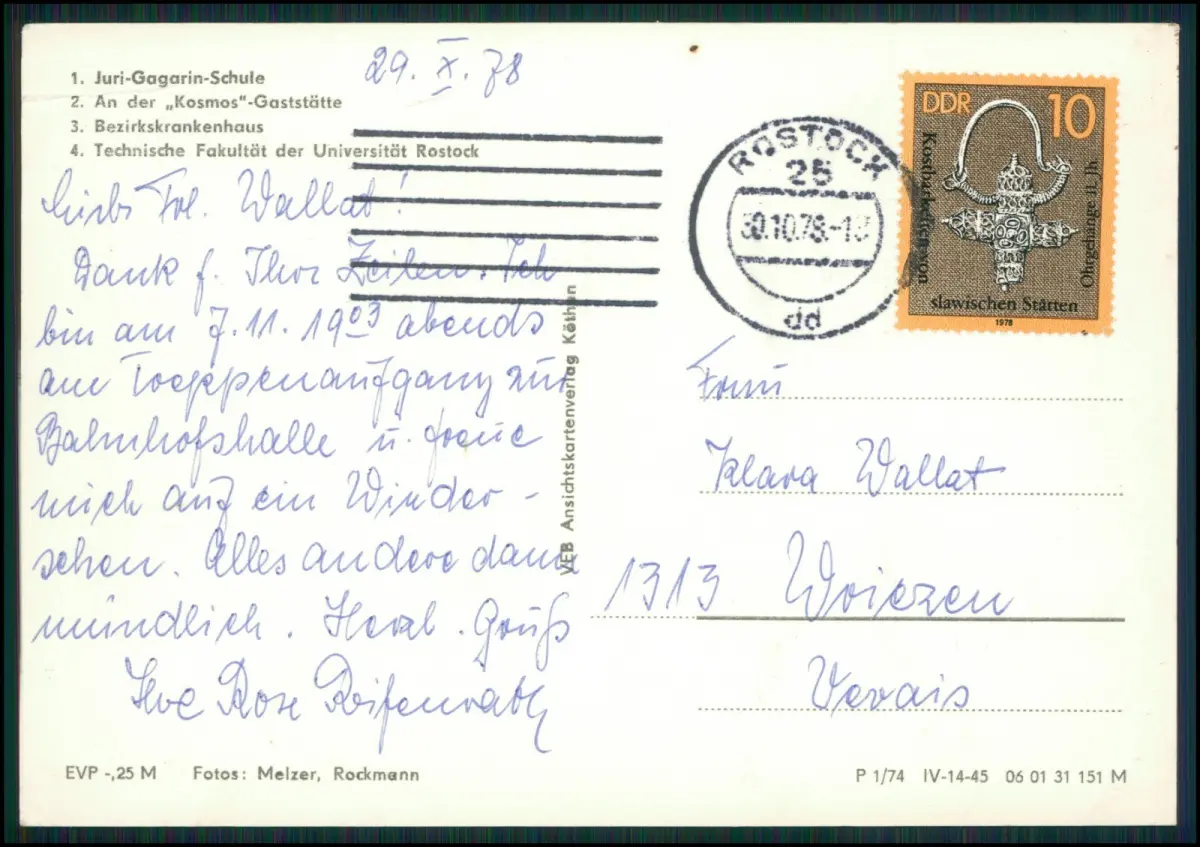 1. Juri-Gagarin-Schule
2. An der „Kosmos"-Gaststätte
3. Bezirkskrankenhaus
4. Technische Fakultät der Universität Rostock
29. X. 78
Liebe Frl. Wallat!
Dank f. Ihre Zeilen. Ich
bin am 7.11. 19⁰³ abends
am Treppenaufgang zur
Bahnhofshalle u. freue
mich auf ein Wieder-
sehen. Alles andere dann
mündlich. Herzl. Gruß
Ihre Rose Reifenrath
VEB Ansichtskartenverlag Köthen
EVP -,25 M Fotos: Melzer, Rockmann
ROSTOCK
25
30.10.78.-13
dd
DDR 10
Kostbarkeiten von
slawischen Stätten
Ohrgehänge 11. Jh.
1978
Frau
Klara Wallat
1313 Wriezen
Vevais
P 1/74 IV-14-45 06 01 31 151 M